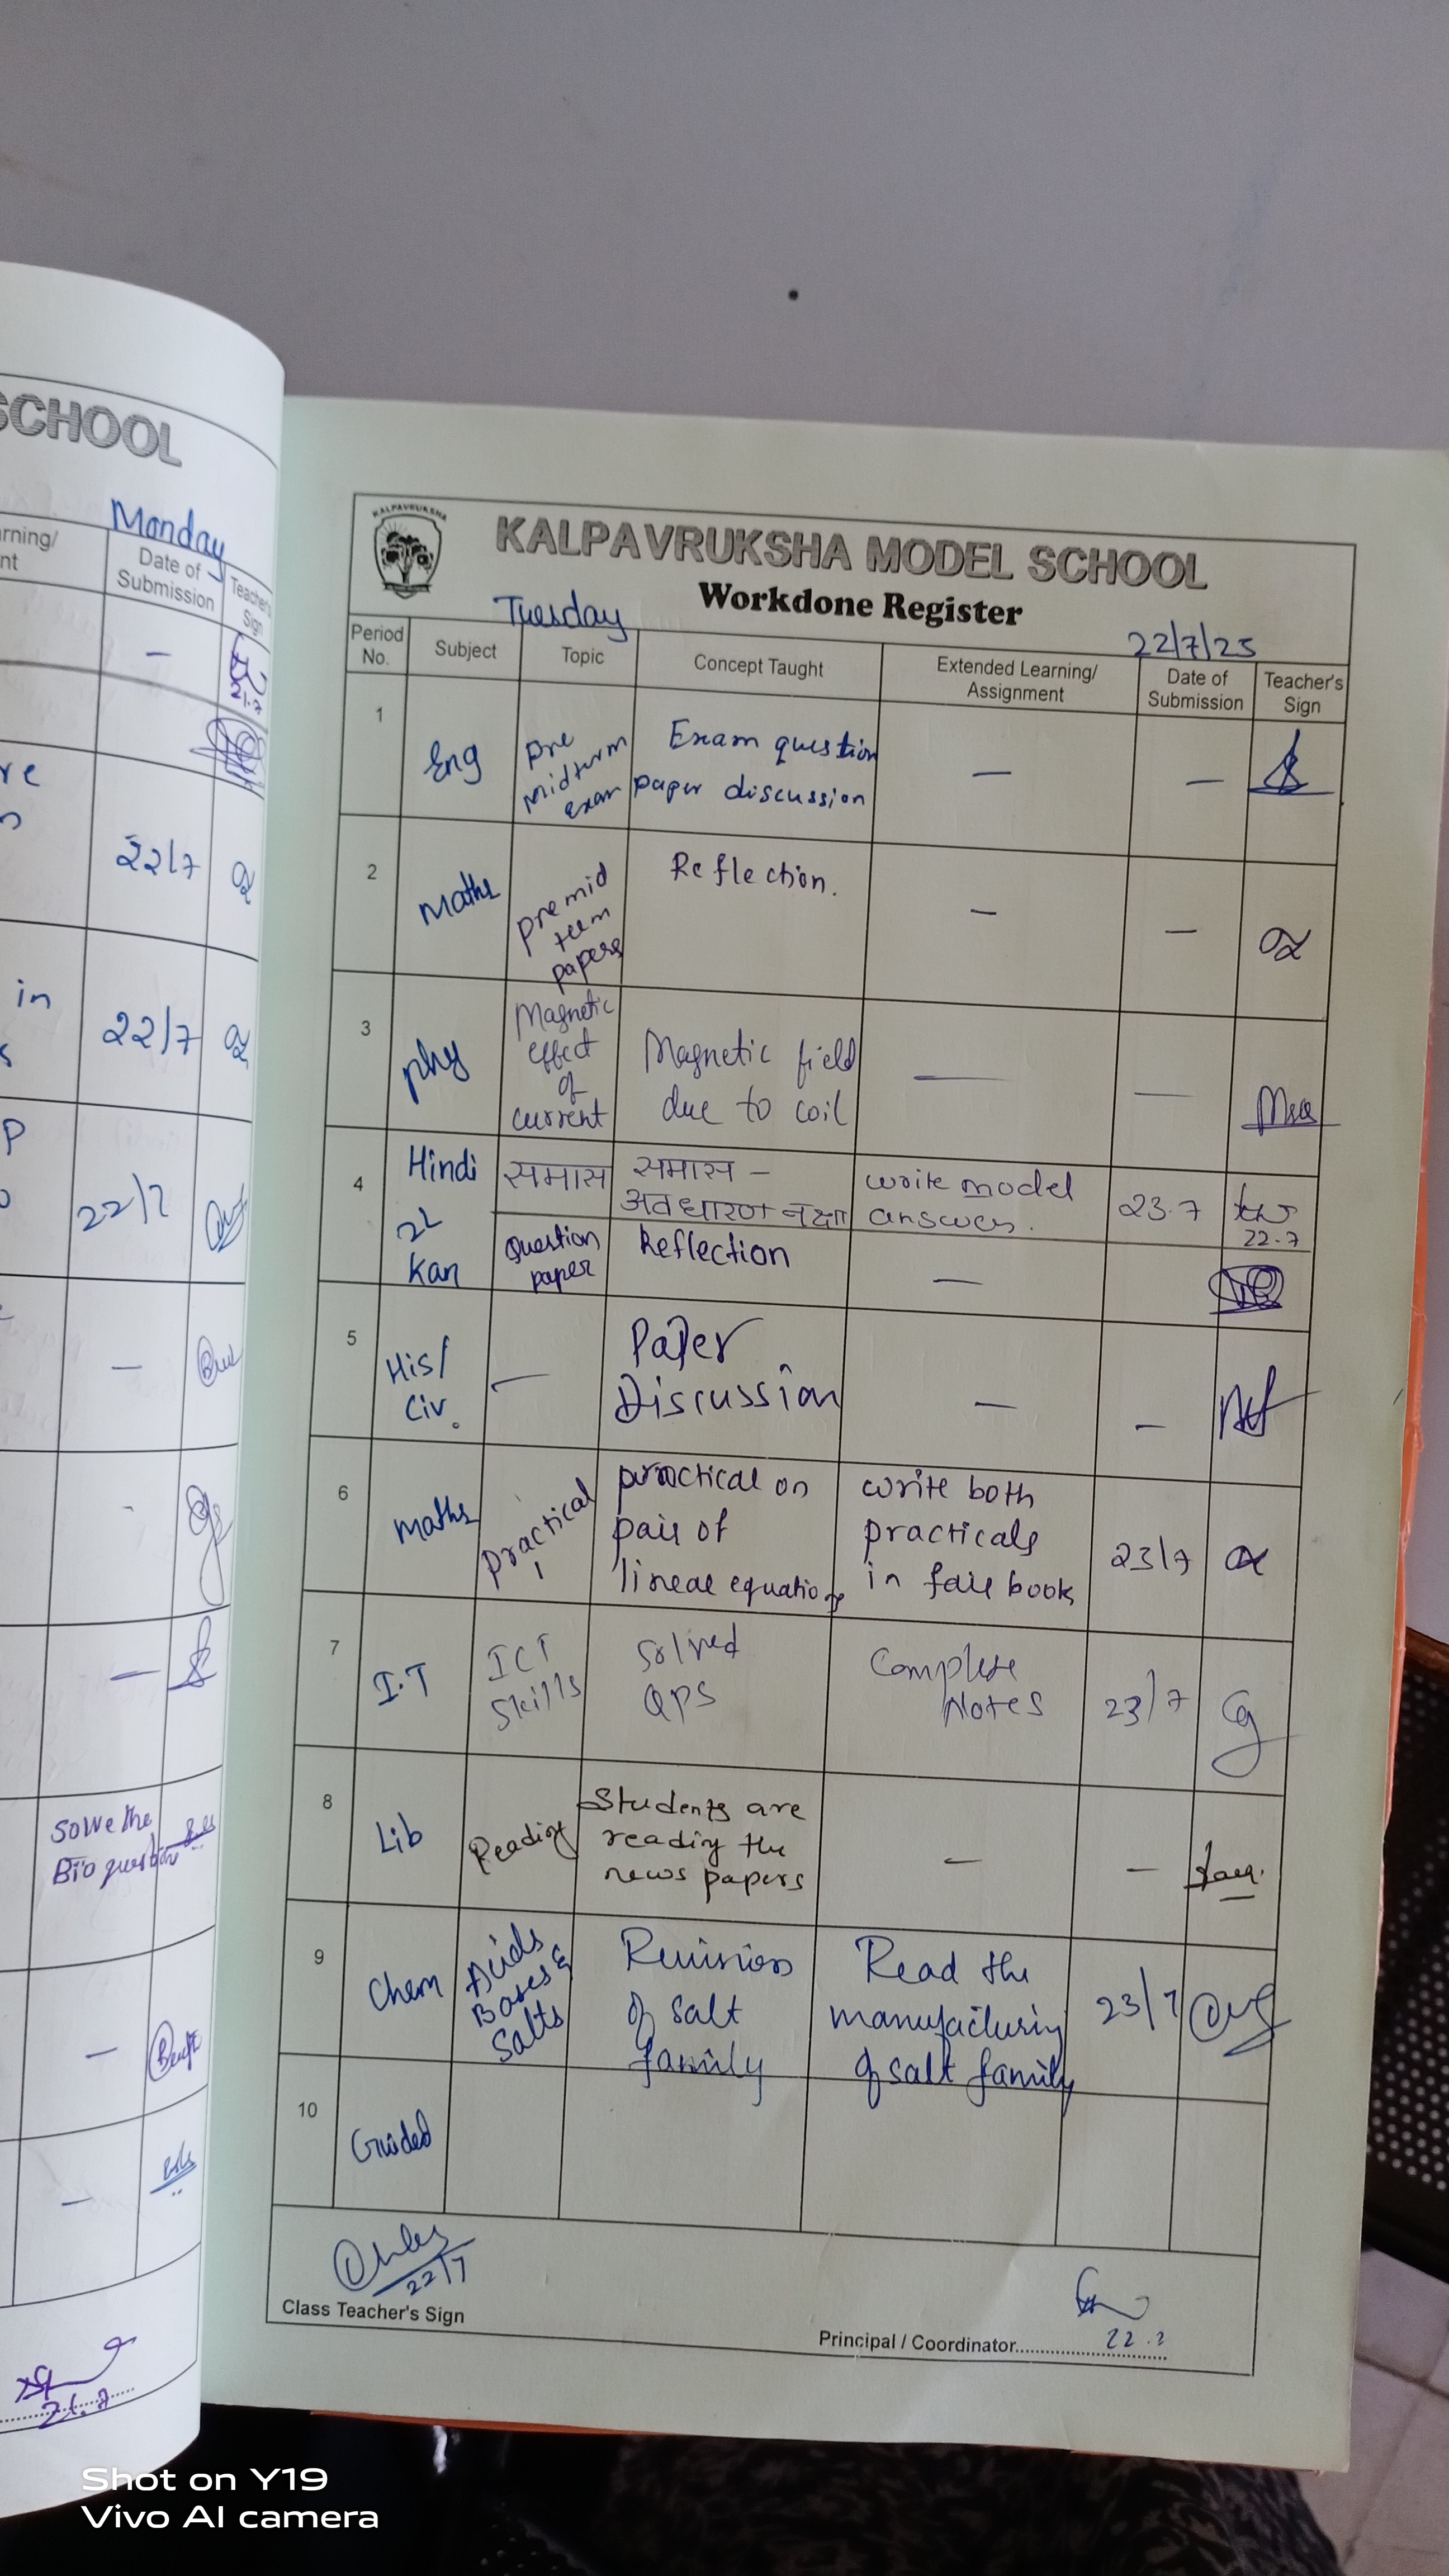 SCHOOL
Monday
rning/
nt
Date of
Submission
Teacher's
Sign
21.7
re
22/7
in
22/7
22/7
Solve the
Bio question
21.7
KALPAVRUKSHA
KALPAVRUKSHA MODEL SCHOOL
Workdone Register
Tuesday
22/7/25
Period
No.
Subject
Topic
Concept Taught
Extended Learning/
Assignment
Date of
Submission
Teacher's
Sign
1
Eng
Pre
midturm
exam
Exam question
paper discussion
—
—
2
Maths
Pre mid
term
papers
Reflection.
—
—
3
Phy
Magnetic
effect
of
current
Magnetic field
due to coil
—
—
4
Hindi
समास
समास –
अवधारणा नक्षा
write model
answer.
23.7
22.7
2L
Kan
Question
paper
Reflection
—
5
His/
Civ.
—
Paper
Discussion
—
—
6
Maths
Practical
1
practical on
pair of
linear equations
write both
practicals
in fair book
23/7
7
I.T
ICT
Skills
Solved
QPS
Complete
Notes
23/7
8
Lib
Reading
Students are
reading the
news papers
—
—
9
Chem
Acids
Bases &
Salts
Revision
of salt
family
Read the
manufacturing
of salt family
23/7
10
Guided
22/7
Class Teacher's Sign
Principal / Coordinator
22.7
Shot on Y19
Vivo AI camera